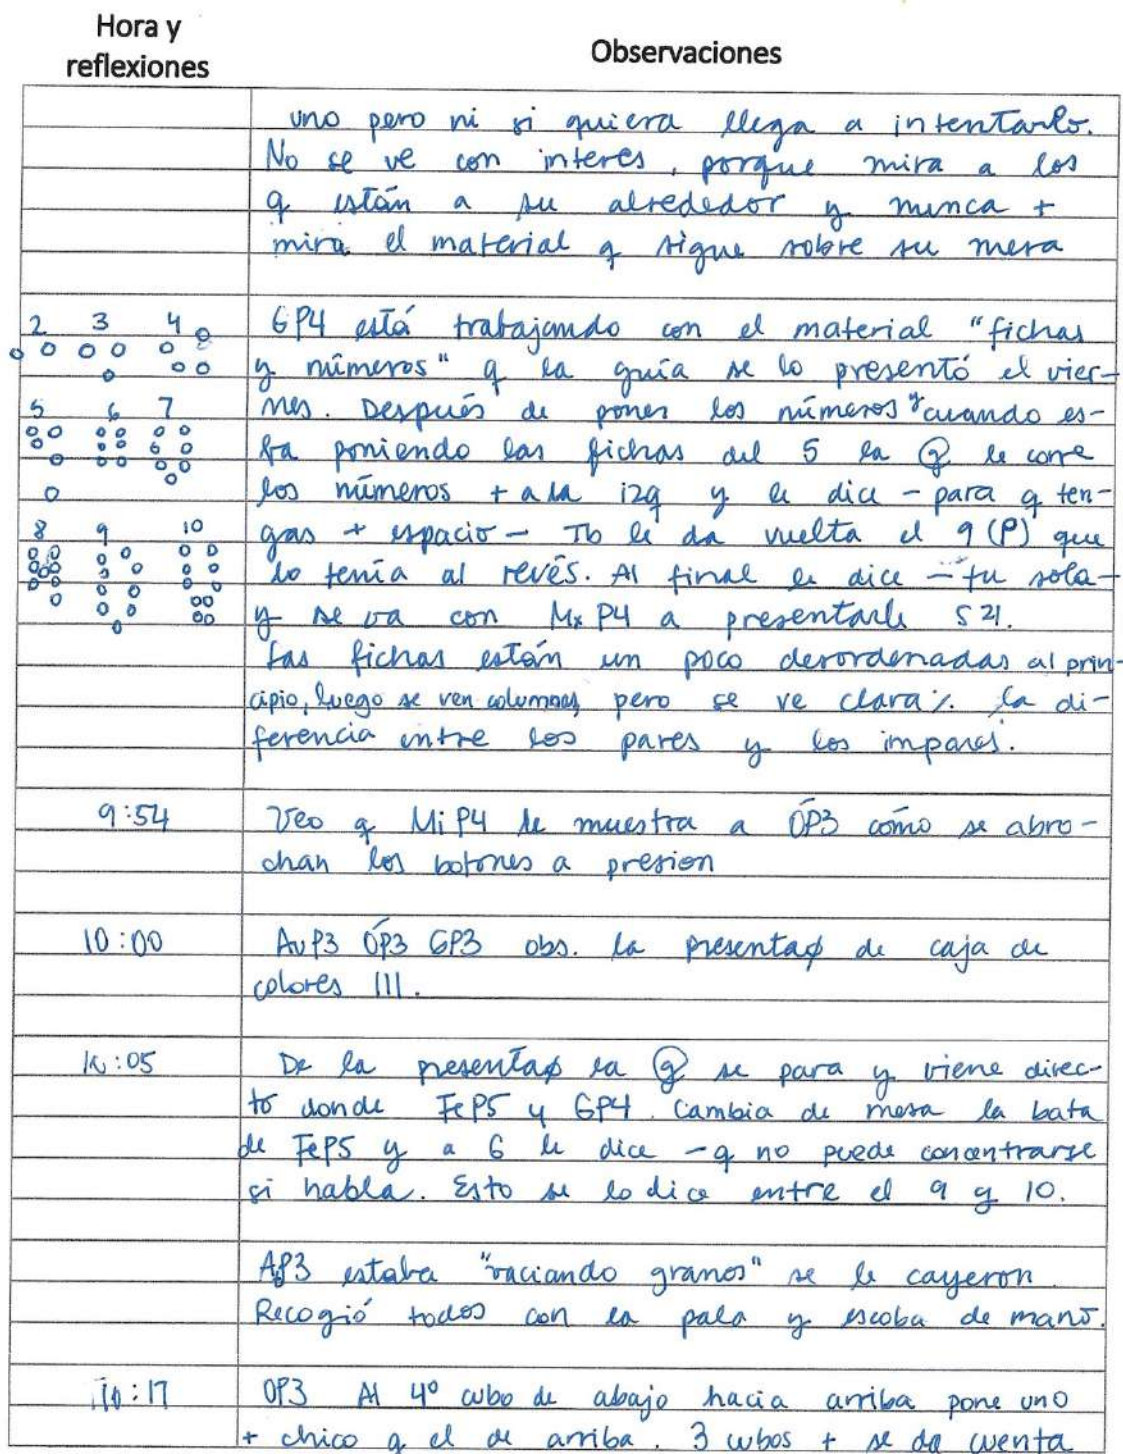 Hora y
reflexiones
Observaciones
uno pero ni si quiera llega a intentarlo.
No se ve con interes, porque mira a los
q están a su alrededor y nunca +
mira el material q sigue sobre su mesa
2 3 4
GP4 está trabajando con el material "fichas
y números" q la guía se lo presentó el vier-
5 6 7
nes. Después de poner los números y cuando es-
ta poniendo las fichas del 5 la G le corre
los números + a la izq y le dice - para q ten-
8 9 10
gas + espacio - Tb le da vuelta el 9 (P) que
lo tenía al revés. Al final le dice - tu sola -
y se va con Mx P4 a presentarle S 21.
Las fichas están un poco desordenadas al prin-
cipio, luego se ven columnas pero se ve clara%. la di-
ferencia entre los pares y los impares.
9:54
Veo q Mi P4 le muestra a ÓP3 cómo se abro-
chan los botones a presion
10:00
AuP3 ÓP3 GP3 obs. la presentaφ de caja de
colores III.
10:05
De la presentaφ la G se para y viene direc-
to donde FeP5 y GP4. Cambia de mesa la bata
de FeP5 y a G le dice - q no puede concentrarse
si habla. Esto se lo dice entre el 9 y 10.
AP3 estaba "vaciando granos" se le cayeron.
Recogió todos con la pala y escoba de mano.
10:17
OP3 Al 4° cubo de abajo hacia arriba pone uno
+ chico q el de arriba. 3 cubos + se da cuenta